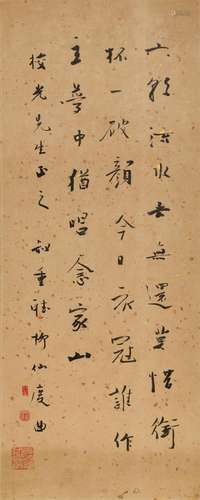 六朝流水去無還莫惜銜
杯一破顏今日衣冠誰作
主夢中猶唱念家山
光先生正之 柳仙度曲